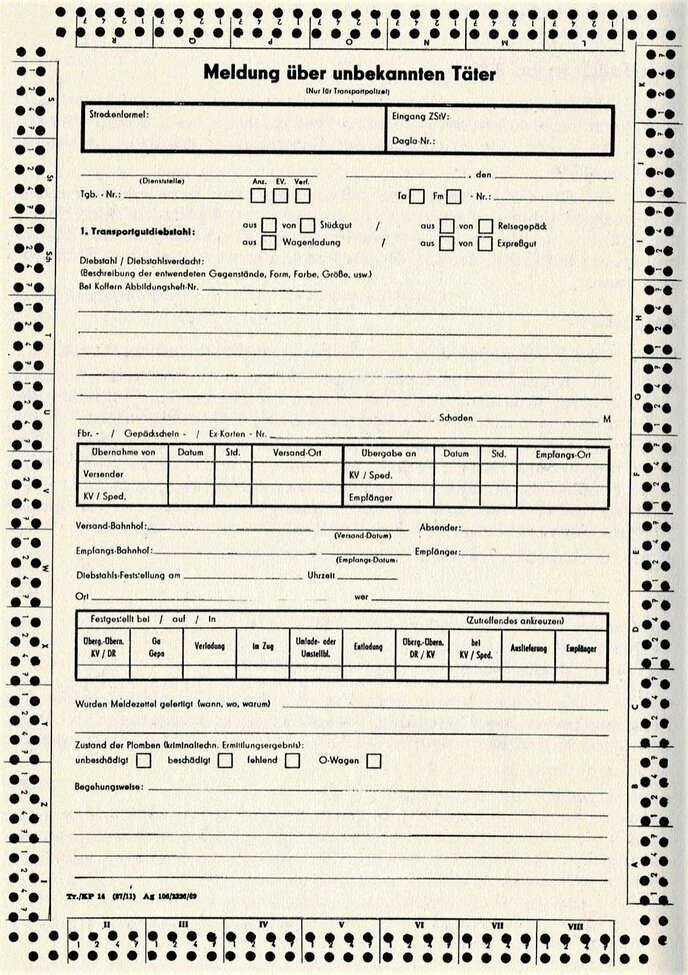 R Q P O N M L
Meldung über unbekannten Täter
(Nur für Transportpolizei)
Streckenformel: Eingang ZStV:
Dagla-Nr.:
(Dienststelle) Anz. EV. Verf. , den
Tgb. - Nr.: Ta Fm - Nr.:
1. Transportgutdiebstahl: aus von Stückgut / aus von Reisegepäck
aus Wagenladung / aus von Expreßgut
Diebstahl / Diebstahlsverdacht:
(Beschreibung der entwendeten Gegenstände, Form, Farbe, Größe, usw.)
Bei Koffern Abbildungsheft-Nr.
Schaden M
Fbr. - / Gepäckschein - / Ex-Karten - Nr.
Übernahme von Datum Std. Versand-Ort Übergabe an Datum Std. Empfangs-Ort
Versender KV / Sped.
KV / Sped. Empfänger
Versand-Bahnhof: Absender:
(Versand-Datum)
Empfangs-Bahnhof: Empfänger:
(Empfangs-Datum)
Diebstahls-Feststellung am Uhrzeit
Ort wer
Festgestellt bei / auf / in (Zutreffendes ankreuzen)
Überg.-Übern. KV / DR Ga Gepa Verladung im Zug Umlade- oder Umstellbf. Entladung Überg.-Übern. DR / KV bei KV / Sped. Auslieferung Empfänger
Wurden Meldezettel gefertigt (wann, wo, warum)
Zustand der Plomben (kriminaltechn. Ermittlungsergebnis):
unbeschädigt beschädigt fehlend O-Wagen
Begehungsweise:
Tr./KP 14 (87/11) Ag 106/2326/69
II III IV V VI VII VIII
S
St
Sch
T
U
V
W
X
Y
Z
I
K
I
H
G
F
E
D
C
B
A